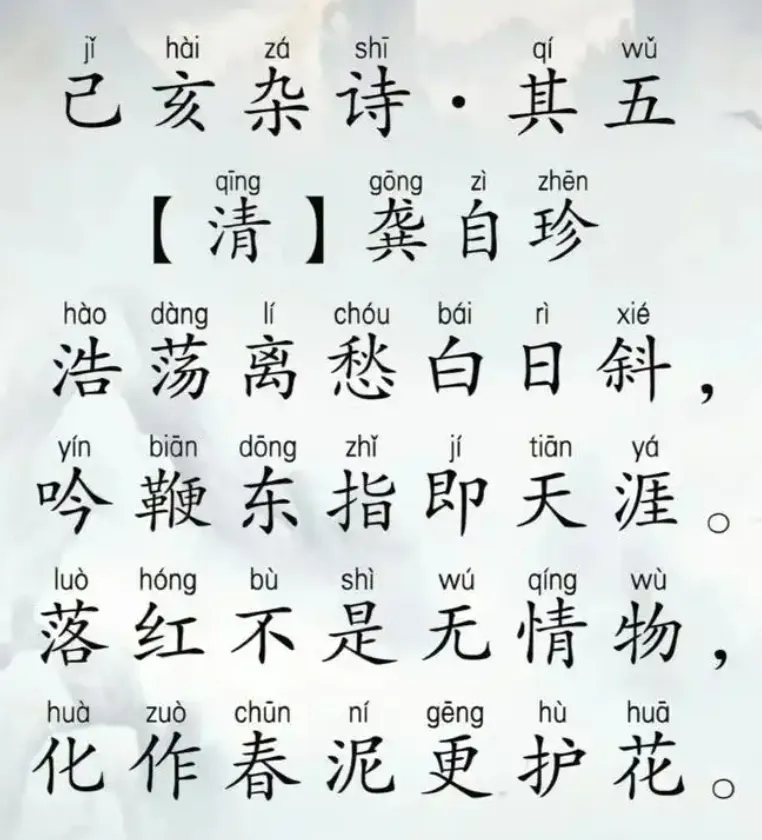 jǐ hài zá shī qí wǔ
己亥杂诗·其五
qīng gōng zì zhēn
【清】龚自珍
hào dàng lí chóu bái rì xié
浩荡离愁白日斜，
yín biān dōng zhǐ jí tiān yá
吟鞭东指即天涯。
luò hóng bù shì wú qíng wù
落红不是无情物，
huà zuò chūn ní gēng hù huā
化作春泥更护花。